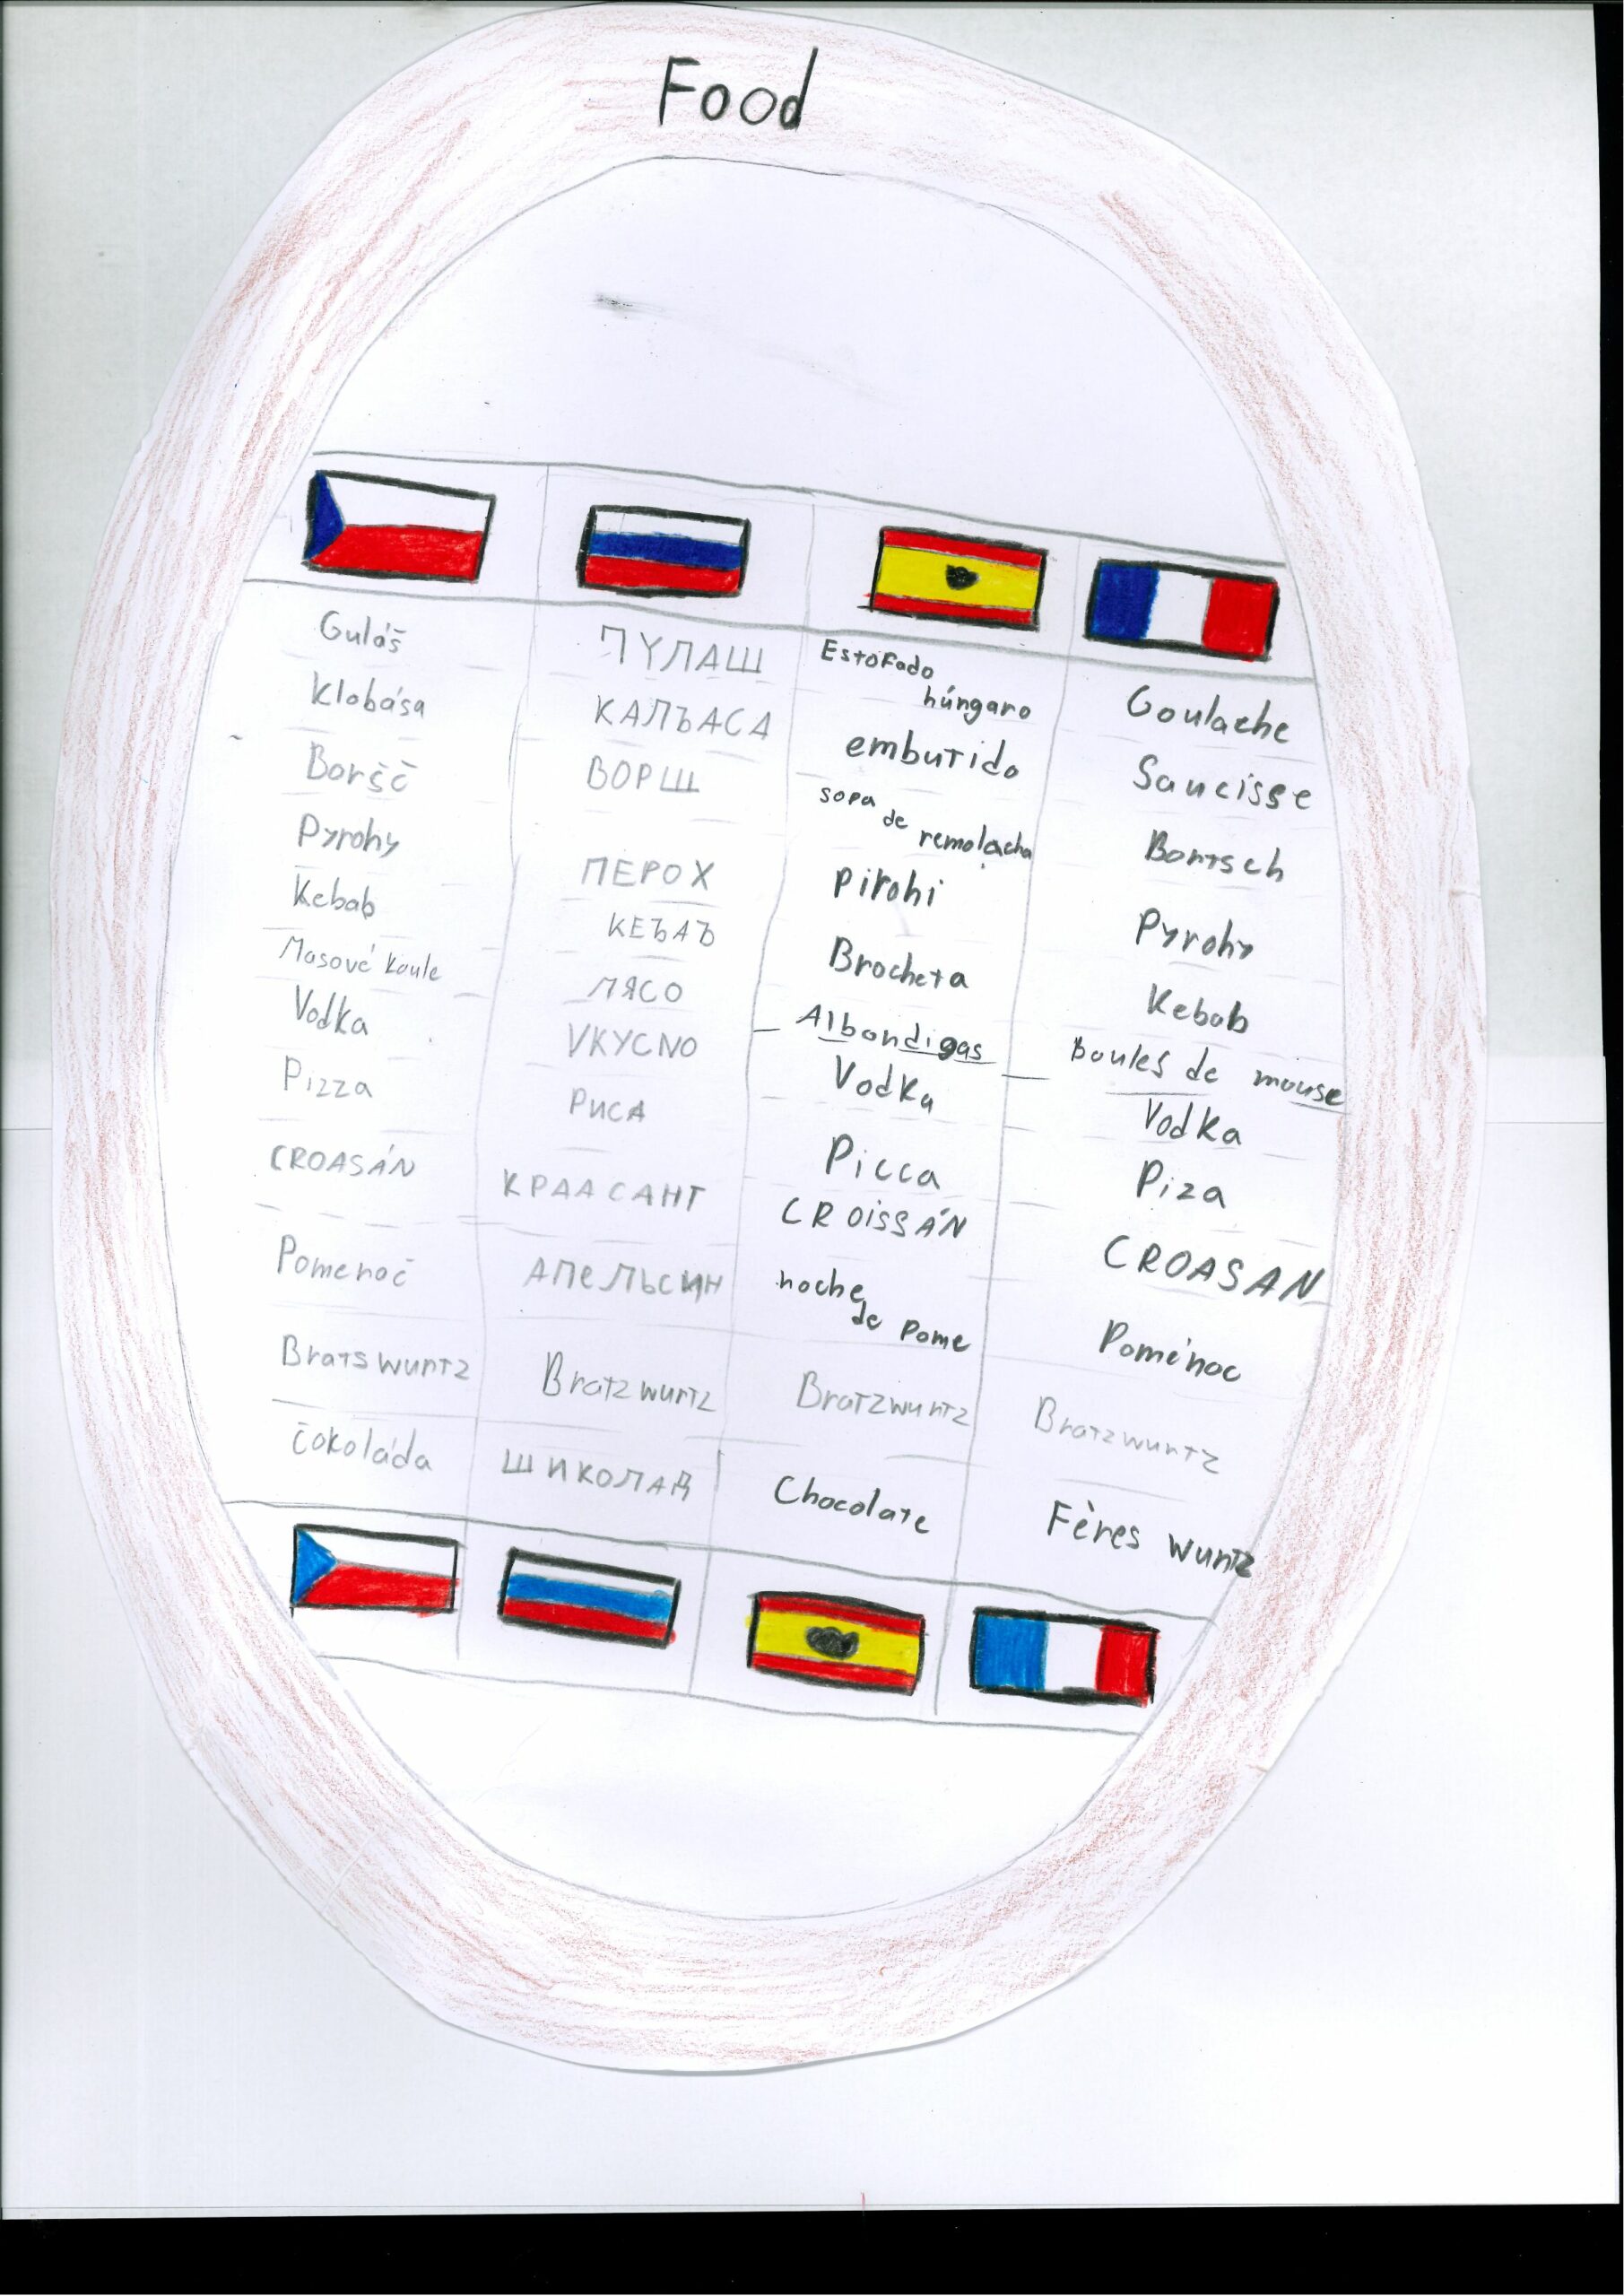 Food
Guláš ПУЛАШ Estofado húngaro Goulache
Klobása КАЛЪАСА embutido Saucisse
Boršč ВОРШ sopa de remolacha Bortsch
Pyrohy ПЕРОХ Pirohi Pyrohy
Kebab КЕЪАЪ Brocheta Kebab
Masové koule МЯСО Albondigas Boules de mouse
Vodka VКУСNО Vodka Vodka
Pizza РИСА Picca Piza
CROASÁN КРААСАНТ CROISSÁN CROASAN
Pomenoč АПЕЛЬСИН noche de Pome Poménoc
Bratswurtz Bratzwurtz Bratzwurtz Bratzwurtz
čokoláda ШИКОЛАД Chocolate Fères wurtz